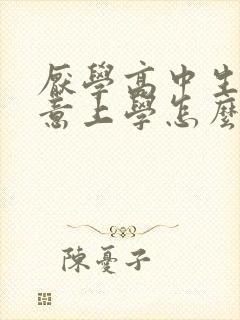 厭學高中生
意上學怎麼
陳憂子